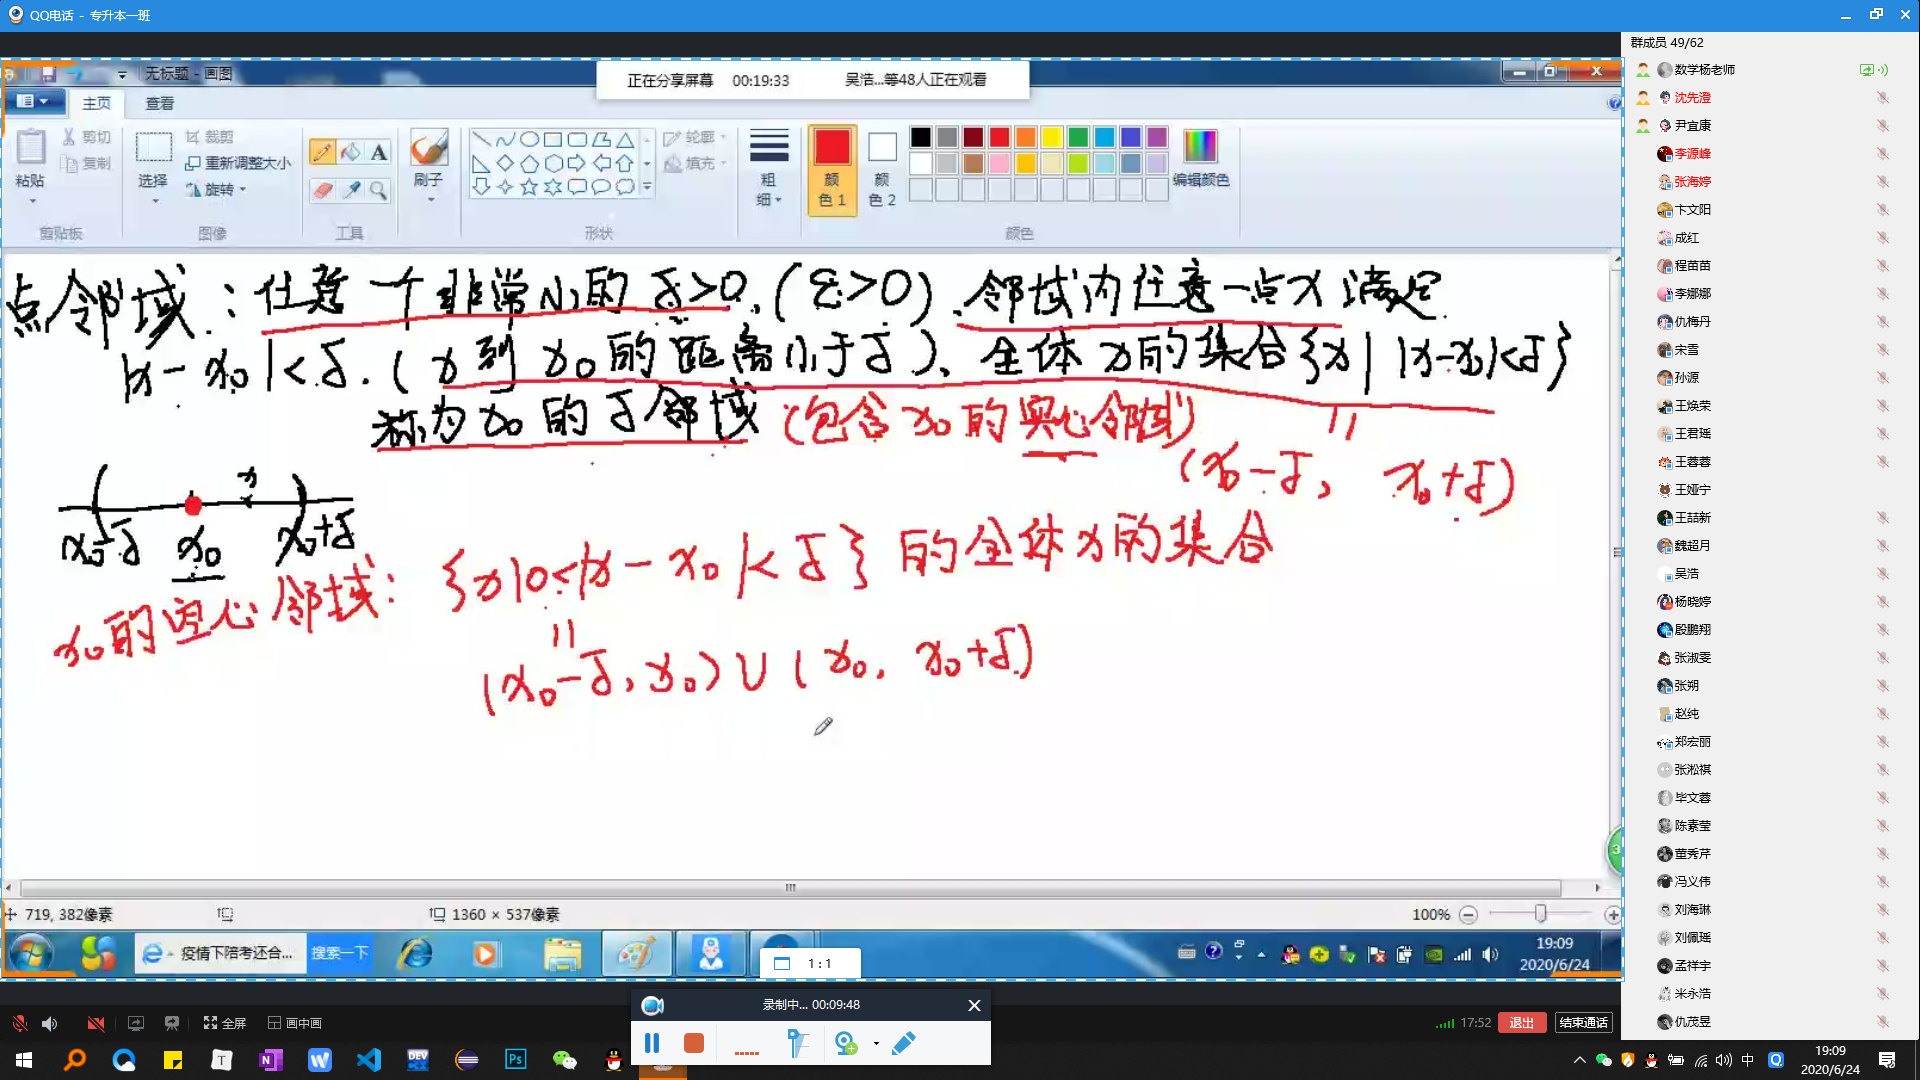 QQ电话 - 专升本一班
无标题 - 画图
正在分享屏幕 00:19:33 吴浩...等48人正在观看
主页 查看
粘贴
剪切
复制
剪贴板
选择
裁剪
重新调整大小
旋转
图像
A
工具
刷子
轮廓
填充
形状
粗细
颜色 1
颜色 2
编辑颜色
颜色
点邻域：任意一个非常小的 δ>0.(ε>0)、邻域内任意一点x满足
|x-x₀|<δ.(x到x₀的距离小于δ)、全体x的集合{x||x-x₀|<δ}
称为x₀的δ邻域 (包含x₀的实心邻域)
=
(x₀-δ, x₀+δ)
x
x₀-δ x₀ x₀+δ
x₀的空心邻域: {x|0<|x-x₀|<δ}的全体x的集合
=
(x₀-δ,x₀)∪(x₀, x₀+δ)
719, 382像素
1360 × 537像素
100%
疫情下陪考还合...
搜索一下
19:09
2020/6/24
1 : 1
录制中... 00:09:48
全屏
画中画
17:52
退出
结束通话
群成员 49/62
数学杨老师
沈先澄
尹宜康
李源峰
张海婷
卞文阳
成红
程苗苗
李娜娜
仇梅丹
宋雪
孙源
王焕荣
王君瑶
王蓉蓉
王娅宁
王喆新
魏超月
吴浩
杨晓婷
殷鹏翔
张淑雯
张朔
赵纯
郑宏丽
张淞祺
毕文蓉
陈素莹
董秀芹
冯义伟
刘海琳
刘佩瑶
孟祥宇
米永浩
仇茂昱
T
N
W
DEV
Ps
中
19:09
2020/6/24